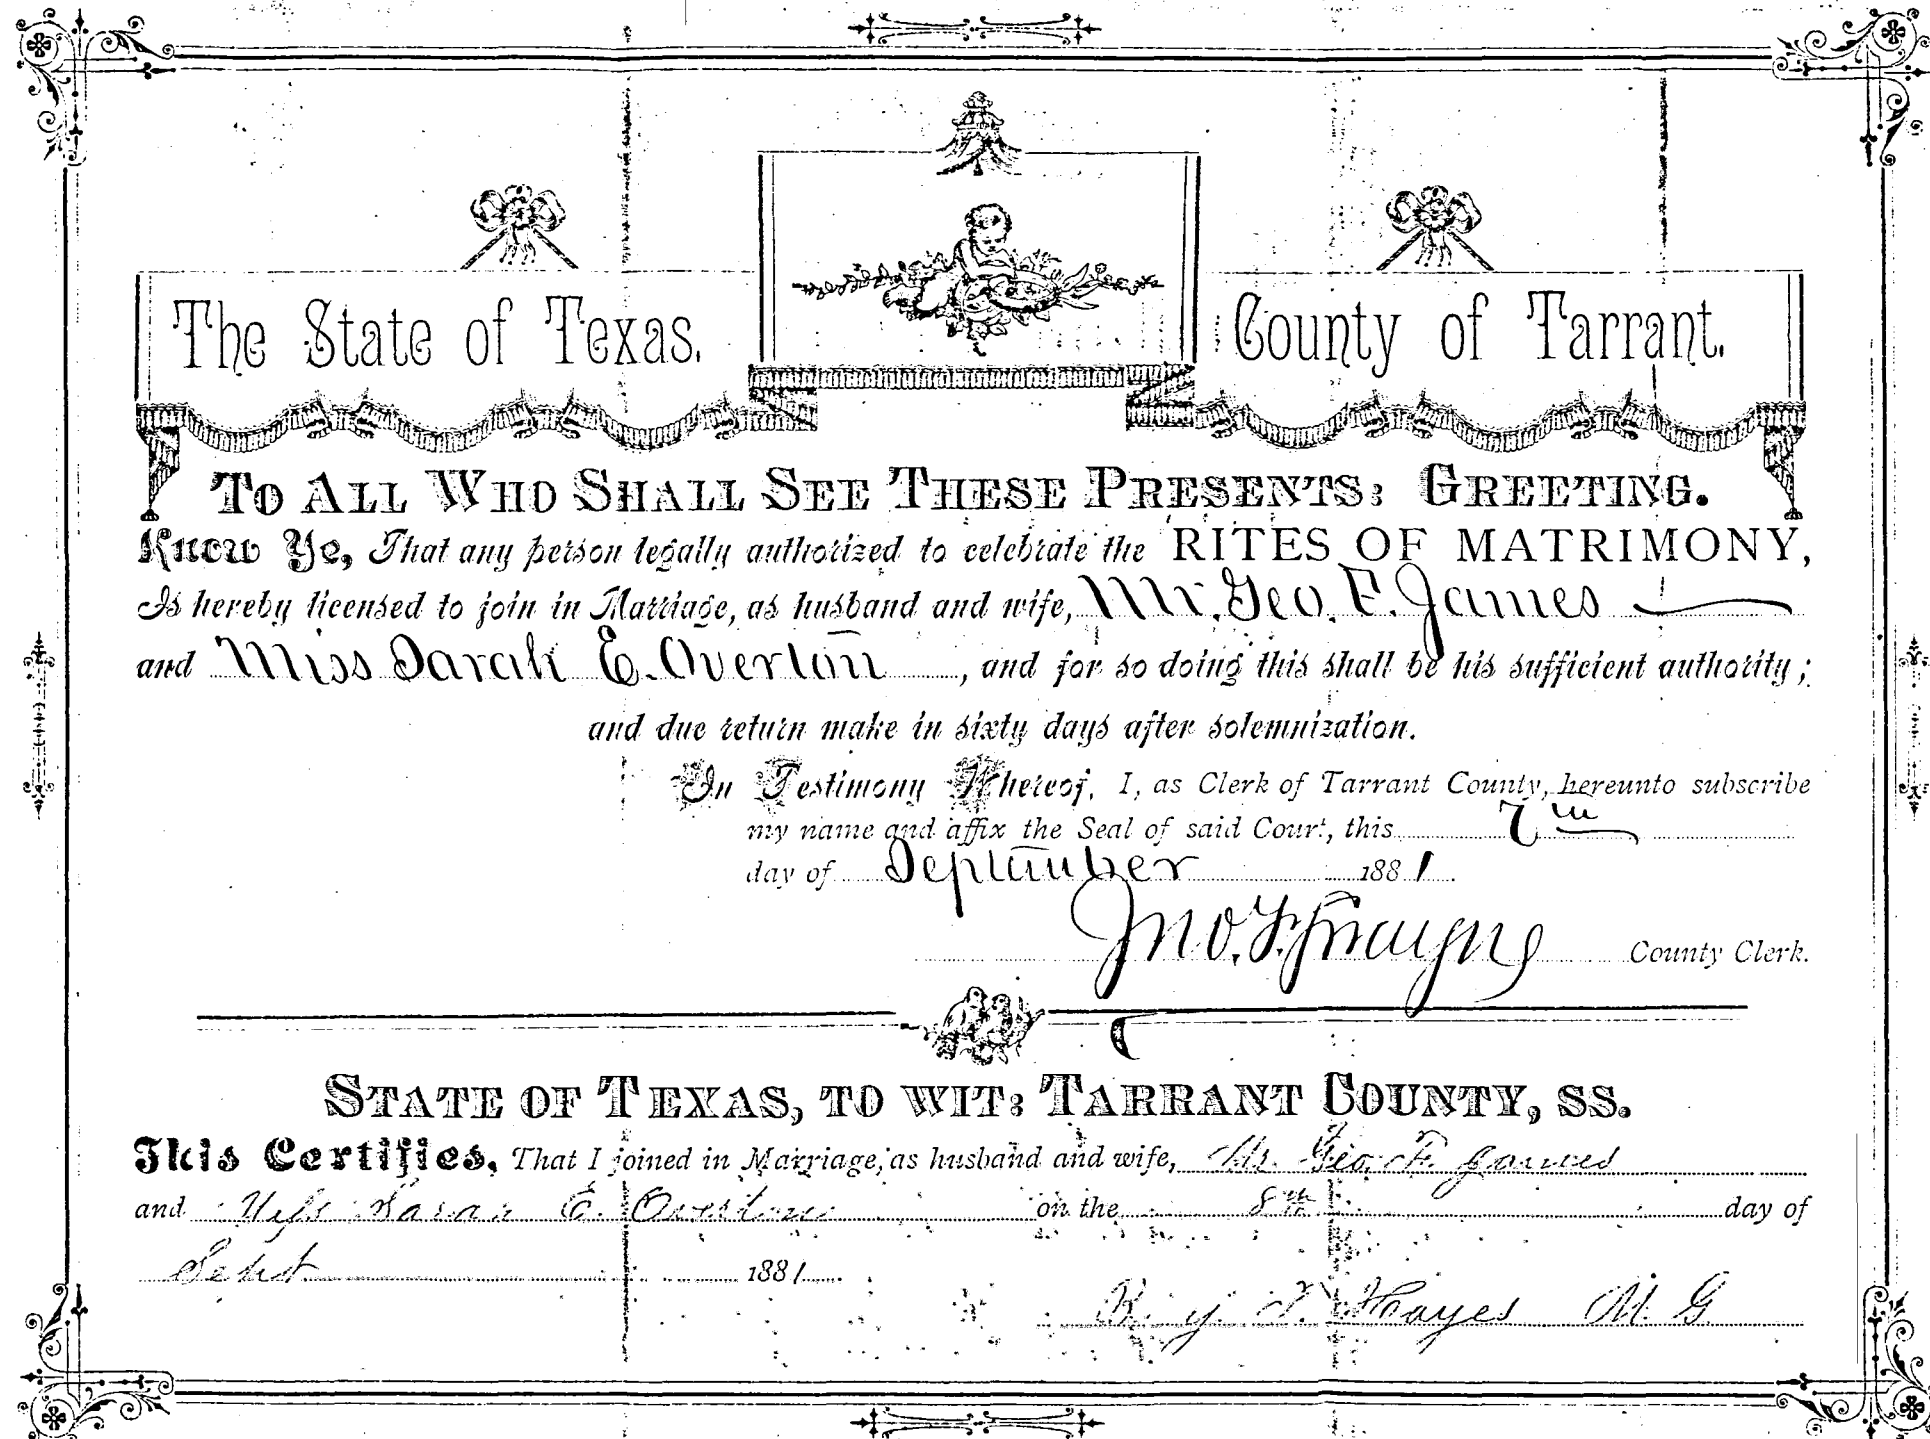 The State of Texas.
County of Tarrant.
TO ALL WHO SHALL SEE THESE PRESENTS: GREETING.
Know Ye, That any person legally authorized to celebrate the RITES OF MATRIMONY,
Is hereby licensed to join in Marriage, as husband and wife, Mr. Geo. F. James
and Miss Sarah E. Overton, and for so doing this shall be his sufficient authority;
and due return make in sixty days after solemnization.
In Testimony Whereof, I, as Clerk of Tarrant County, hereunto subscribe
my name and affix the Seal of said Court, this 7th
day of September 1881.
Jno. F. Swayne County Clerk.
STATE OF TEXAS, TO WIT: TARRANT COUNTY, SS.
This Certifies, That I joined in Marriage, as husband and wife, Mr. Geo. F. James
and Miss Sarah E. Overton on the 8th day of
Sept 1881.
Hayes M. G.